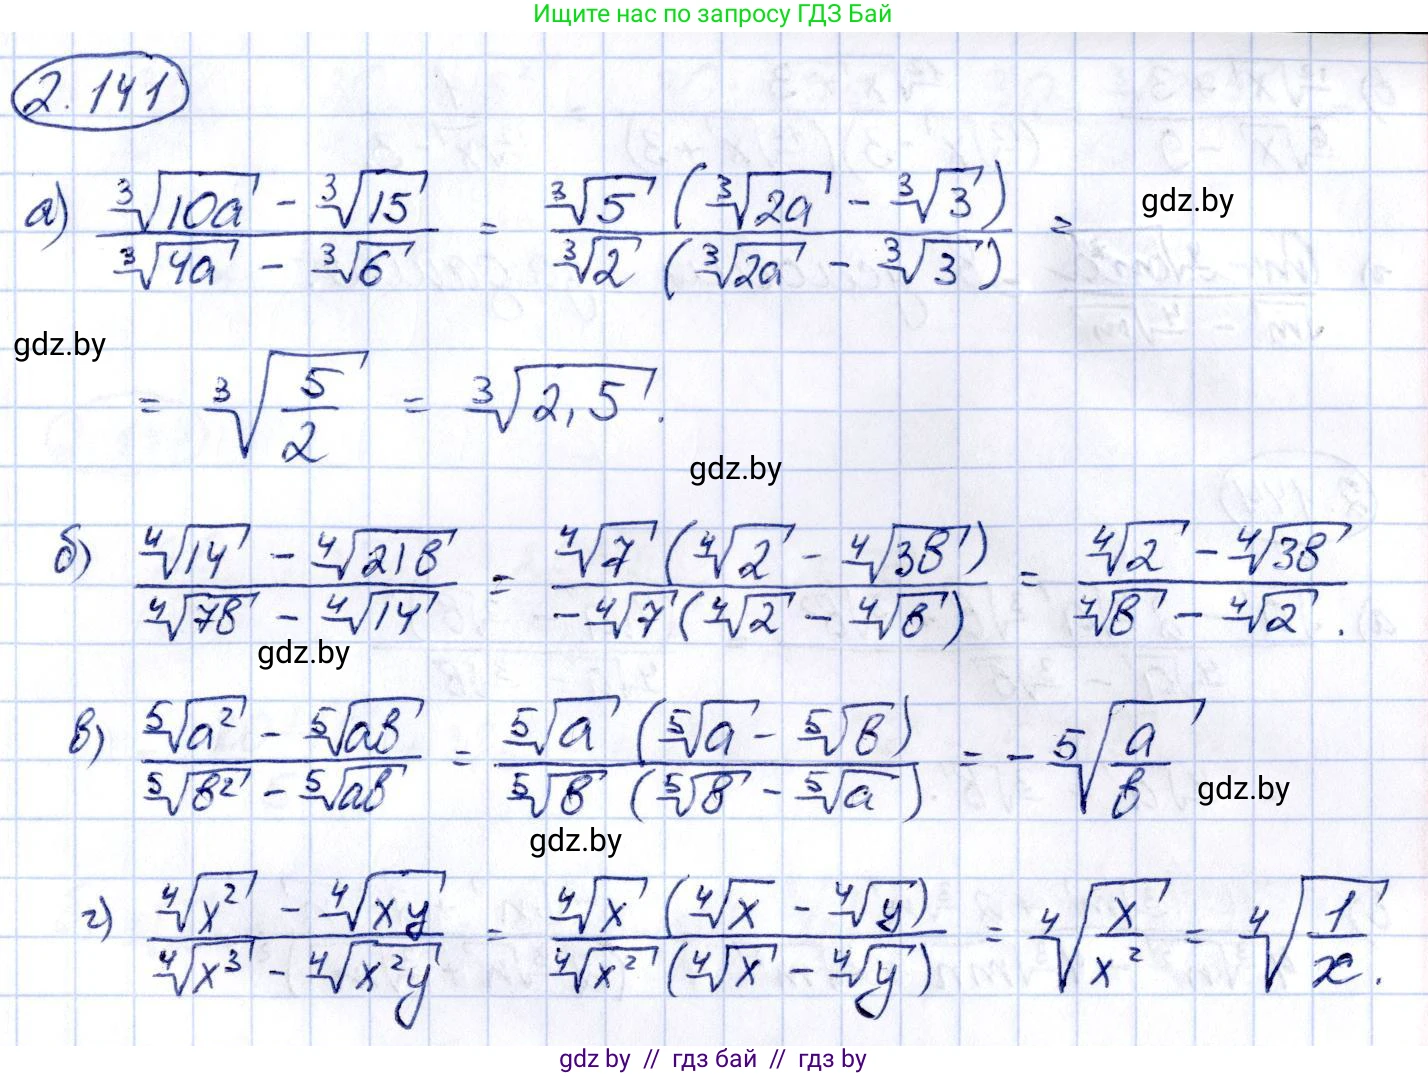 Ищите нас по запросу ГДЗ Бай
2.141
а) (∛(10a) - ∛15) / (∛(4a) - ∛6) = (∛5 (∛(2a) - ∛3)) / (∛2 (∛(2a) - ∛3)) =
gdz.by
gdz.by
= ∛(5/2) = ∛(2,5).
gdz.by
б) (∜14 - ∜(21b)) / (∜(7b) - ∜14) = (∜7 (∜2 - ∜(3b))) / (-∜7 (∜2 - ∜b)) = (∜2 - ∜(3b)) / (∜b - ∜2).
gdz.by
в) (⁵√(a²) - ⁵√(ab)) / (⁵√(b²) - ⁵√(ab)) = (⁵√a (⁵√a - ⁵√b)) / (⁵√b (⁵√b - ⁵√a)) = - ⁵√(a/b)
gdz.by
gdz.by
г) (∜(x²) - ∜(xy)) / (∜(x³) - ∜(x²y)) = (∜x (∜x - ∜y)) / (∜(x²) (∜x - ∜y)) = ∜(x/x²) = ∜(1/x).
gdz by // гдз бай // гдз by